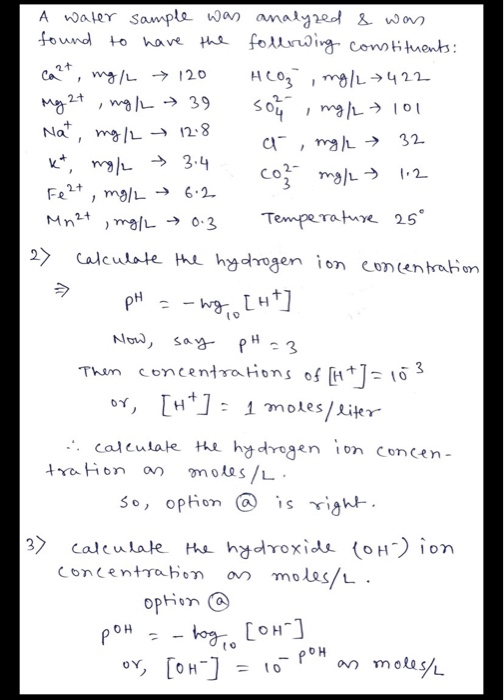 A water sample was analyzed & was
found to have the following constituents:
Ca²⁺, mg/L → 120    HCO₃⁻, mg/L → 422
Mg²⁺, mg/L → 39    SO₄²⁻, mg/L → 101
Na⁺, mg/L → 12.8    Cl⁻, mg/L → 32
K⁺, mg/L → 3.4    CO₃²⁻ mg/L → 1.2
Fe²⁺, mg/L → 6.2
Mn²⁺, mg/L → 0.3    Temperature 25°
2) Calculate the hydrogen ion concentration
⇒ pH = -log₁₀ [H⁺]
Now, say pH = 3
Then concentrations of [H⁺] = 10⁻³
or, [H⁺] = 1 moles/liter
∴ calculate the hydrogen ion concen-
tration as moles/L.
So, option ⓐ is right.
3) calculate the hydroxide (OH⁻) ion
concentration as moles/L.
option ⓐ
pOH = - log₁₀ [OH⁻]
or, [OH⁻] = 10⁻ᵖᴼᴴ as moles/L